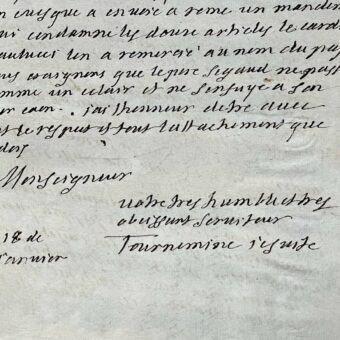 evesque a envoié a rome un mandem
ui condamne les douse articles le card
aulucci len a remercié au nom du pap
us craignons que le pere segaud ne pass
omme un eclair et ne senfuye a son
er caen. jai lhonneur detre avec
t le respect et tout lattachement que
dois
Monseigneur
votre tres humble et tres
obeissant serviteur
18 de
Tournemine jesuite
Janvier